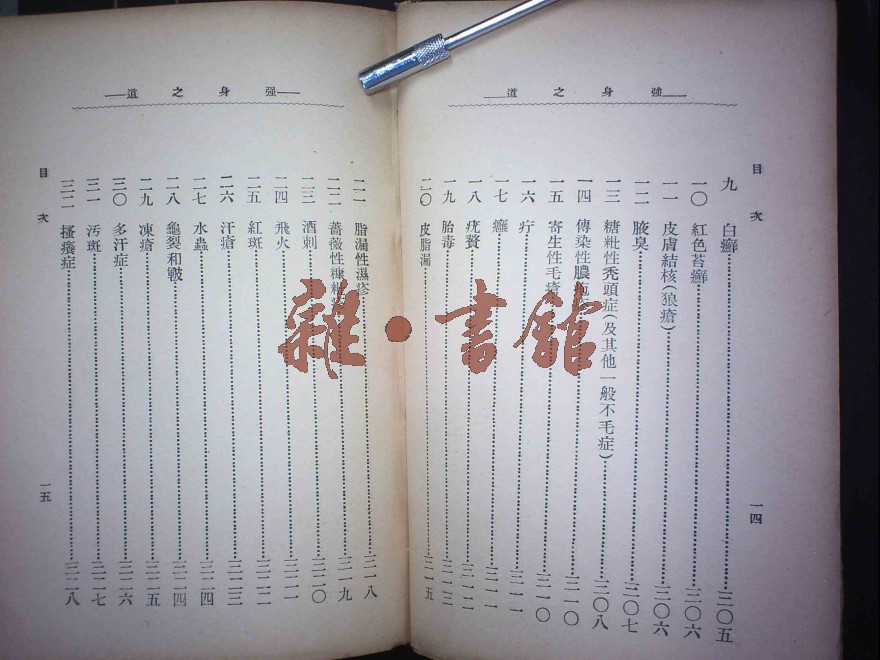 强身之道
目次
一四
九 白癬 三〇五
一〇 紅色苔癬 三〇六
一一 皮膚結核(狼瘡) 三〇六
一二 腋臭 三〇七
一三 糖粃性禿頭症(及其他一般不毛症) 三〇八
一四 傳染性膿 三一〇
一五 寄生性毛瘡 三一〇
一六 疔 三一一
一七 癰 三一一
一八 疣贅 三一二
一九 胎毒 三一三
二〇 皮脂漏 三一五
强身之道
二一 脂漏性濕疹 三一八
二二 薔薇性糠粃 三一九
二三 酒刺 三二〇
二四 飛火 三二一
二五 紅斑 三二二
二六 汗瘡 三二三
二七 水蟲 三二四
二八 龜裂和皸 三二四
二九 凍瘡 三二五
三〇 多汗症 三二六
三一 汚斑 三二七
三二 搔癢症 三二八
目次
一五
雜·書館